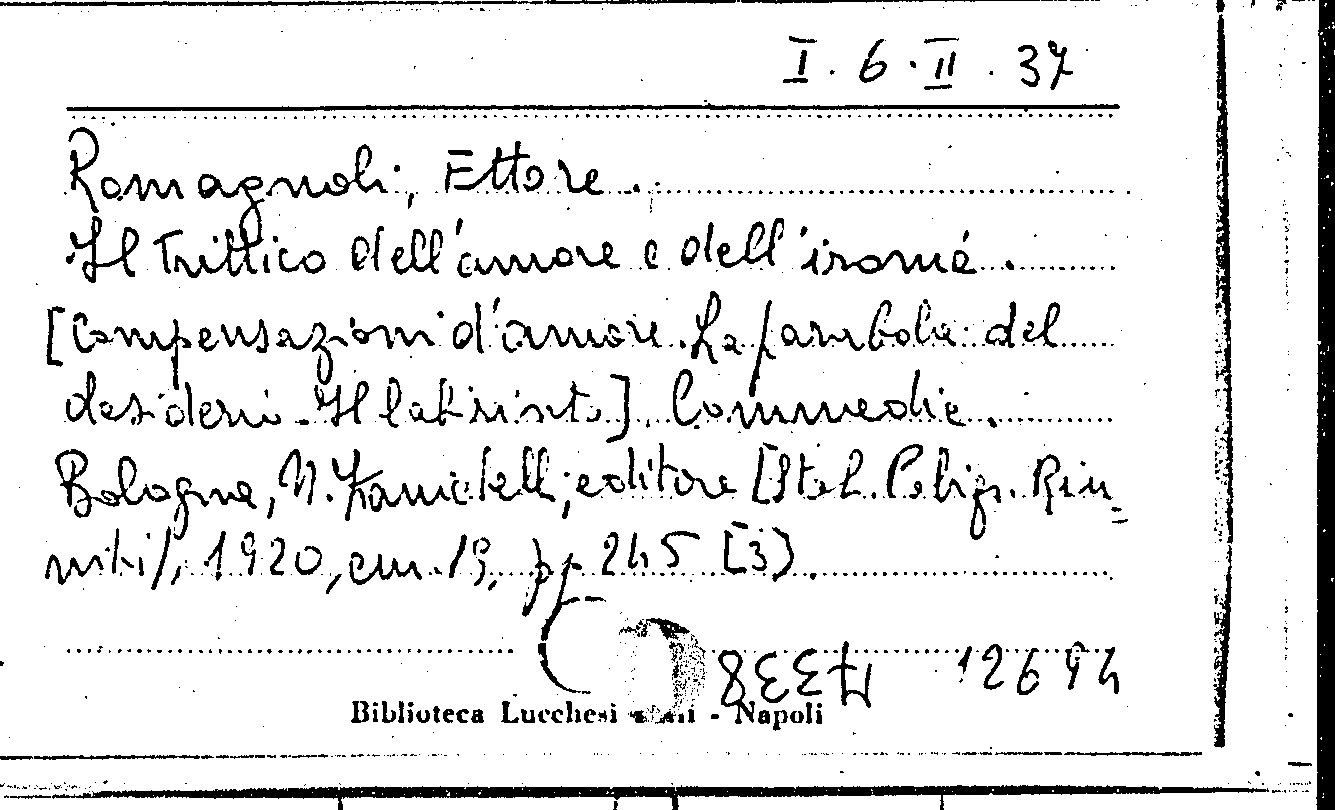 I. 6. II. 37
Romagnoli, Ettore.
Il Trittico dell'amore e dell'ironia.
[Compensazioni d'amore. La parabola del
desiderio. Il labirinto]. Commedie.
Bologna, N. Zanichelli, editore [Stab. Poligr. Riu-
niti], 1920, cm. 19, pp. 245 [3].
12694
Biblioteca Lucchesi - Napoli